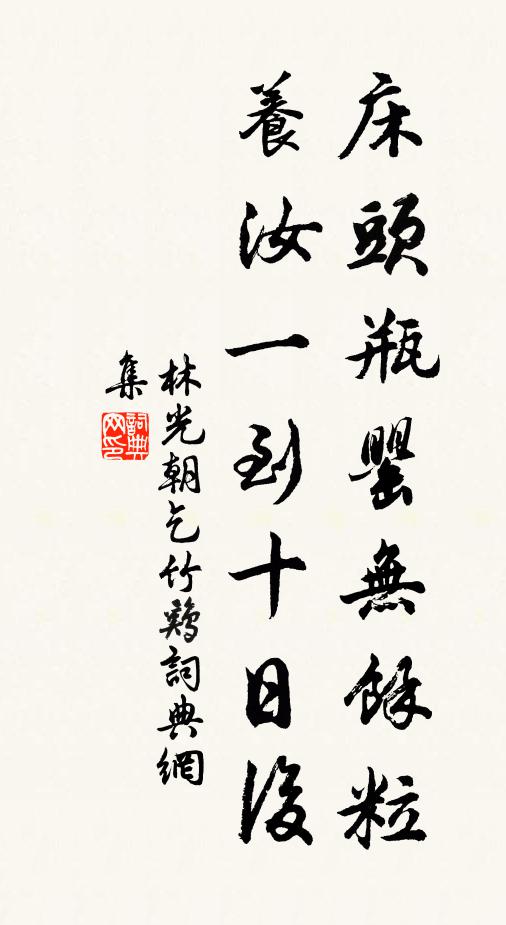 床頭瓶罌無餘粒
養汝一到十日後
林光朝乞竹鷄詞典網
集
詞典網印